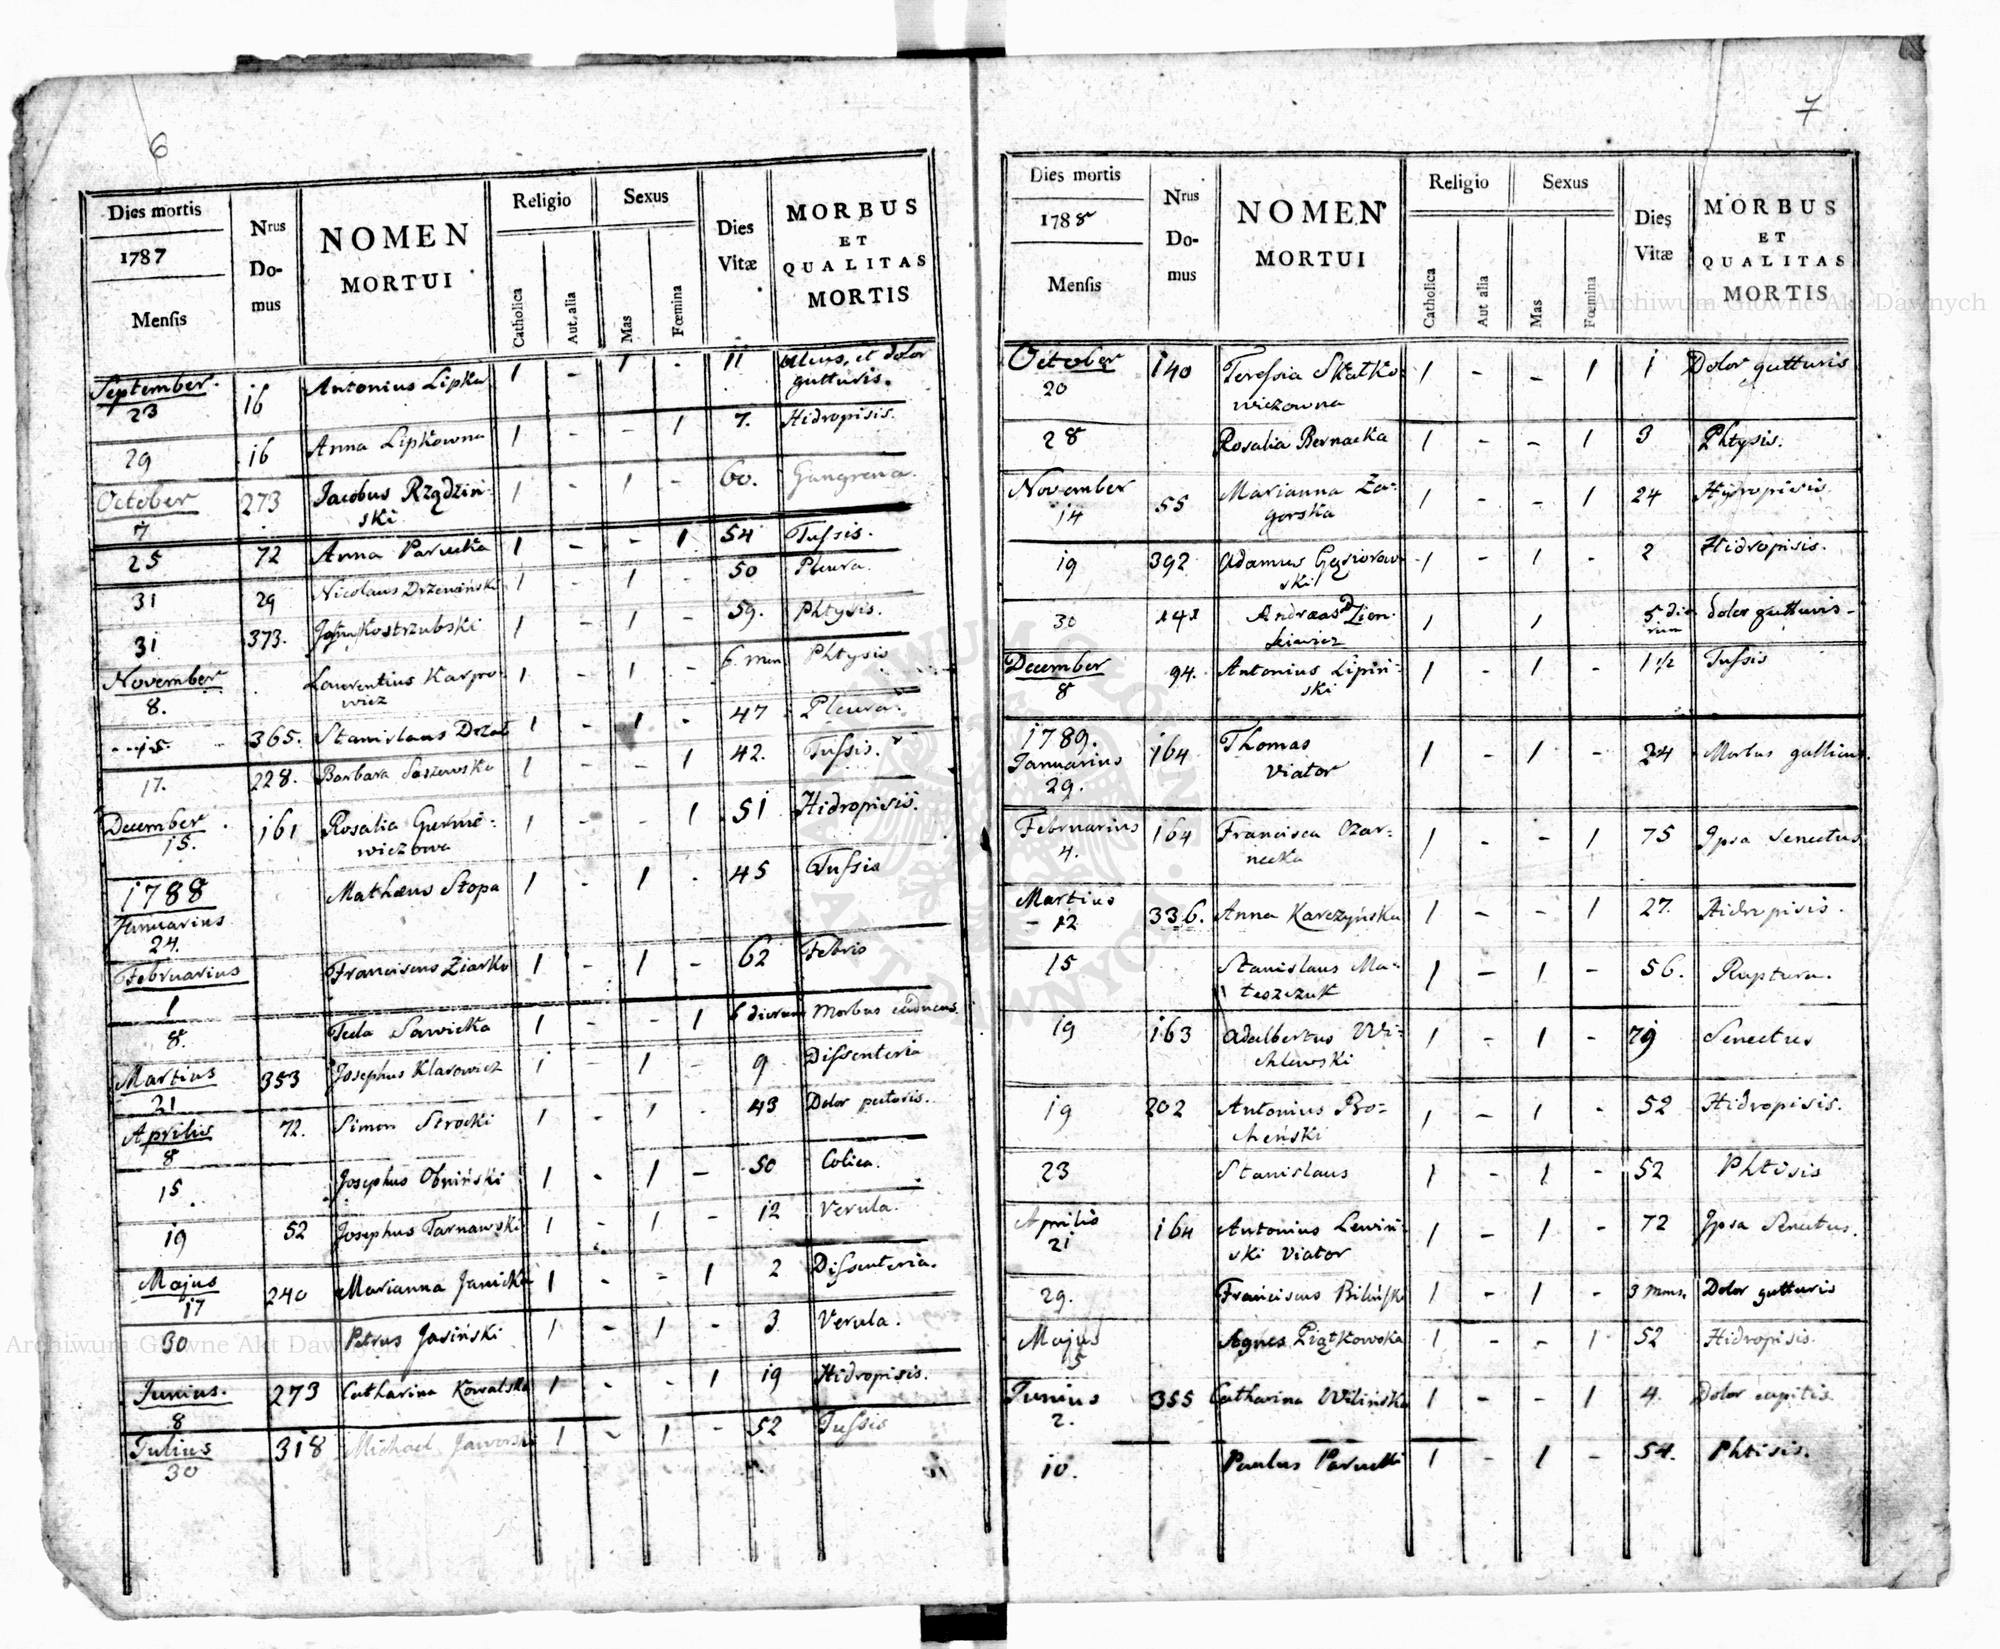 6
Dies mortis
1787
Mensis
Nrus Do- mus
NOMEN MORTUI
Religio
Catholica
Aut. alia
Sexus
Mas
Fœmina
Dies Vitæ
MORBUS ET QUALITAS MORTIS
September. 23 16 Antonius Lipka 1 - 1 - 11 ulcus, et dolor
gutturis.
29 16 Anna Lipkowna 1 - - 1 7. Hidropisis.
October 7 273 Jacobus Rządziń- 1 - 1 - 60. Gangrena.
ski
25 72 Anna Parucka 1 - - 1 54 Tussis.
31 29 Nicolaus 1 - 1 - 50 Pleura.
31 373. Kostrzubski 1 - 1 - 59. Phtysis.
November 8. Laurentius Karpo- 1 - 1 - 6 men. Phtysis
wicz
15. 365. Stanislaus 1 - 1 - 47 Pleura.
17. 228. Barbara Saszewska 1 - - 1 42. Tussis.
December 15. 161 Rosalia 1 - - 1 51 Hidropisis.
wiczowa
1788
Januarius 24. Mathæus Stopa 1 - 1 - 45 Tussis
Februarius 1 Franciscus Ziarko 1 - 1 - 62 Febris
8. Tecla Sawicka 1 - - 1 6 dierum Morbus caducus.
Martius 21 353 Josephus Klarowicz 1 - 1 - 9 Dissenteria
Aprilis 8 72. Simon Strocki 1 - 1 - 43 Dolor pectoris.
15 Josephus Obniński 1 - 1 - 50 Colica.
19 52 Josephus Tarnawski 1 - 1 - 12 Verula.
Majus 17 240 Marianna Janicka 1 - - 1 2 Dissenteria.
30 Petrus Jasiński 1 - 1 - 3 Verula.
Junius. 8 273 Catharina Kowalska 1 - - 1 19 Hidropisis.
Julius 30 318 Michael Jaworski 1 - 1 - 52 Tussis
7
Dies mortis
1788
Mensis
Nrus Do- mus
NOMEN MORTUI
Religio
Catholica
Aut alia
Sexus
Mas
Fœmina
Dies Vitæ
MORBUS ET QUALITAS MORTIS
October 20 140 Teressia Skatko- 1 - - 1 1 Dolor gutturis
wiczowna
28 Rosalia Bernacka 1 - - 1 3 Phtysis.
November 14 55 Marianna Za- 1 - - 1 24 Hydropisis.
gorska
19 392 Adamus Gąsiorow- 1 - 1 - 2 Hidropisis.
ski
30 141 Andreas Zien- 1 1 5 die- dolor gutturis
kiewicz rum
December 8 94. Antonius Lipiń- 1 - 1 - 1 1/2 Tussis
ski
1789.
Januarius 29. 164 Thomas 1 - 1 - 24 Morbus gallicus.
Viator
Februarius 4. 164 Francisca Czar- 1 - - 1 75 Ipsa Senectus
necka
Martius 12 336. Anna Karczyńska 1 - - 1 27. Hidropisis.
15 Stanislaus Ma- 1 - 1 - 56. Ruptura.
teszczuk
19 163 Adalbertus Wi- 1 - 1 - 79 Senectus
chlewski
19 202 Antonius Pro- 1 - 1 - 52 Hidropisis.
cheński
23 Stanislaus 1 - 1 - 52 Phtisis
Aprilis 21 164 Antonius Lewiń- 1 - 1 - 72 Ipsa Senectus.
ski Viator
29. Franciscus Biliński 1 - 1 - 3 mens. Dolor gutturis
Majus 5 Agnes Piątkowska 1 - - 1 52 Hidropisis.
Junius 2. 355 Catharina Wilińska 1 - - 1 4. Dolor capitis.
10. Paulus Parucki 1 - 1 - 54. Phtisis.
Archiwum Główne Akt Dawnych
Archiwum Główne Akt Dawnych
ARCHIWUM GŁÓWNE AKT DAWNYCH